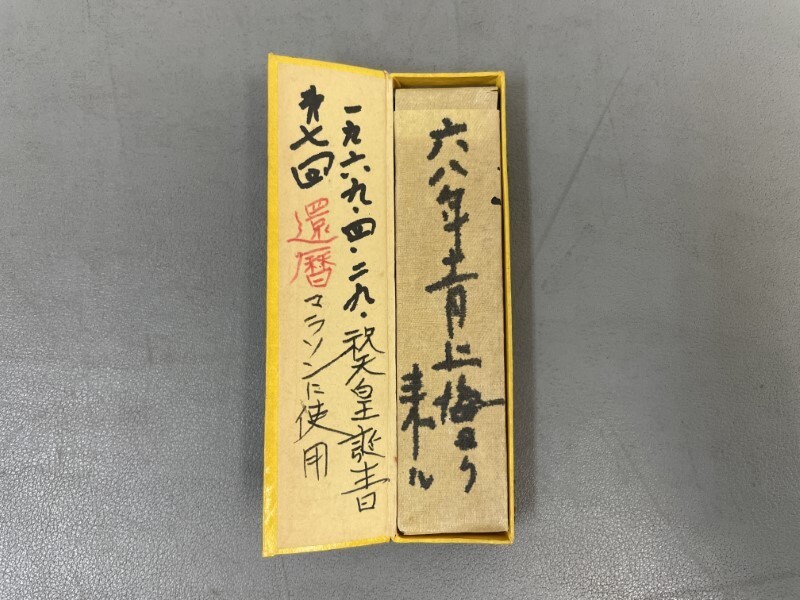 六八年十二月上海ヨリ
来ル
一九六九・四・二九・祝天皇誕生日
才七回還暦マラソンに使用